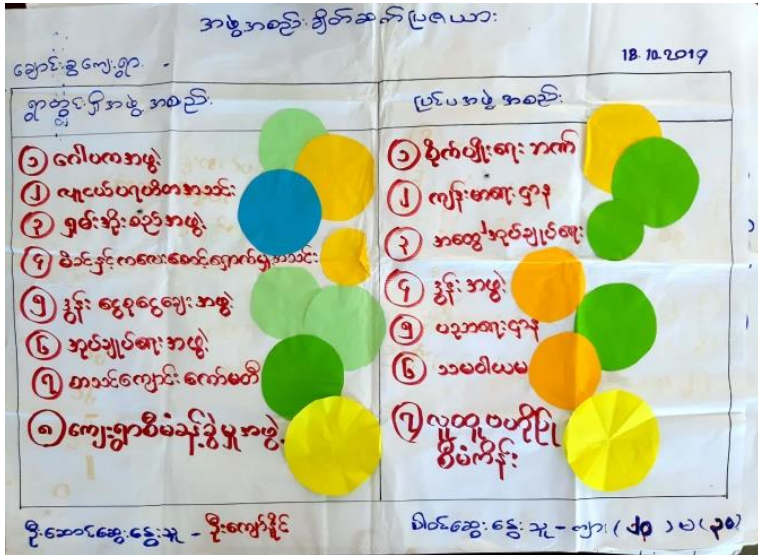 အဖွဲ့အစည်းချိတ်ဆက်ပြဇယား
18.10.2019
ချောင်းခွကျေးရွာ -
ရွာတွင်းရှိအဖွဲ့အစည်း
၁ ဂေါပကအဖွဲ့
၂ လူငယ်ပရဟိတအသင်း
၃ ရှမ်းအိုးစည်အဖွဲ့
၄ မိခင်နှင့်ကလေးစောင့်ရှောက်မှုအသင်း
၅ ဒွန်း ငွေစုငွေချေးအဖွဲ့
၆ အုပ်ချုပ်ရေးအဖွဲ့
၇ စာသင်ကျောင်းကော်မတီ
၈ ကျေးရွာစီမံခန့်ခွဲမှုအဖွဲ့
ပြင်ပအဖွဲ့အစည်း
၁ စိုက်ပျိုးရေးဘဏ်
၂ ကျန်းမာရေးဌာန
၃ အထွေ/အုပ်ချုပ်ရေး
၄ ဒွန်းအဖွဲ့
၅ ပညာရေးဌာန
၆ သမဝါယမ
၇ လူထုဗဟိုပြု
စီမံကိန်း
ဦးဆောင်ဆွေးနွေးသူ - ဦးကျော်နိုင်
ပါဝင်ဆွေးနွေးသူ - ကျား (၂၀) မ (၃၀)